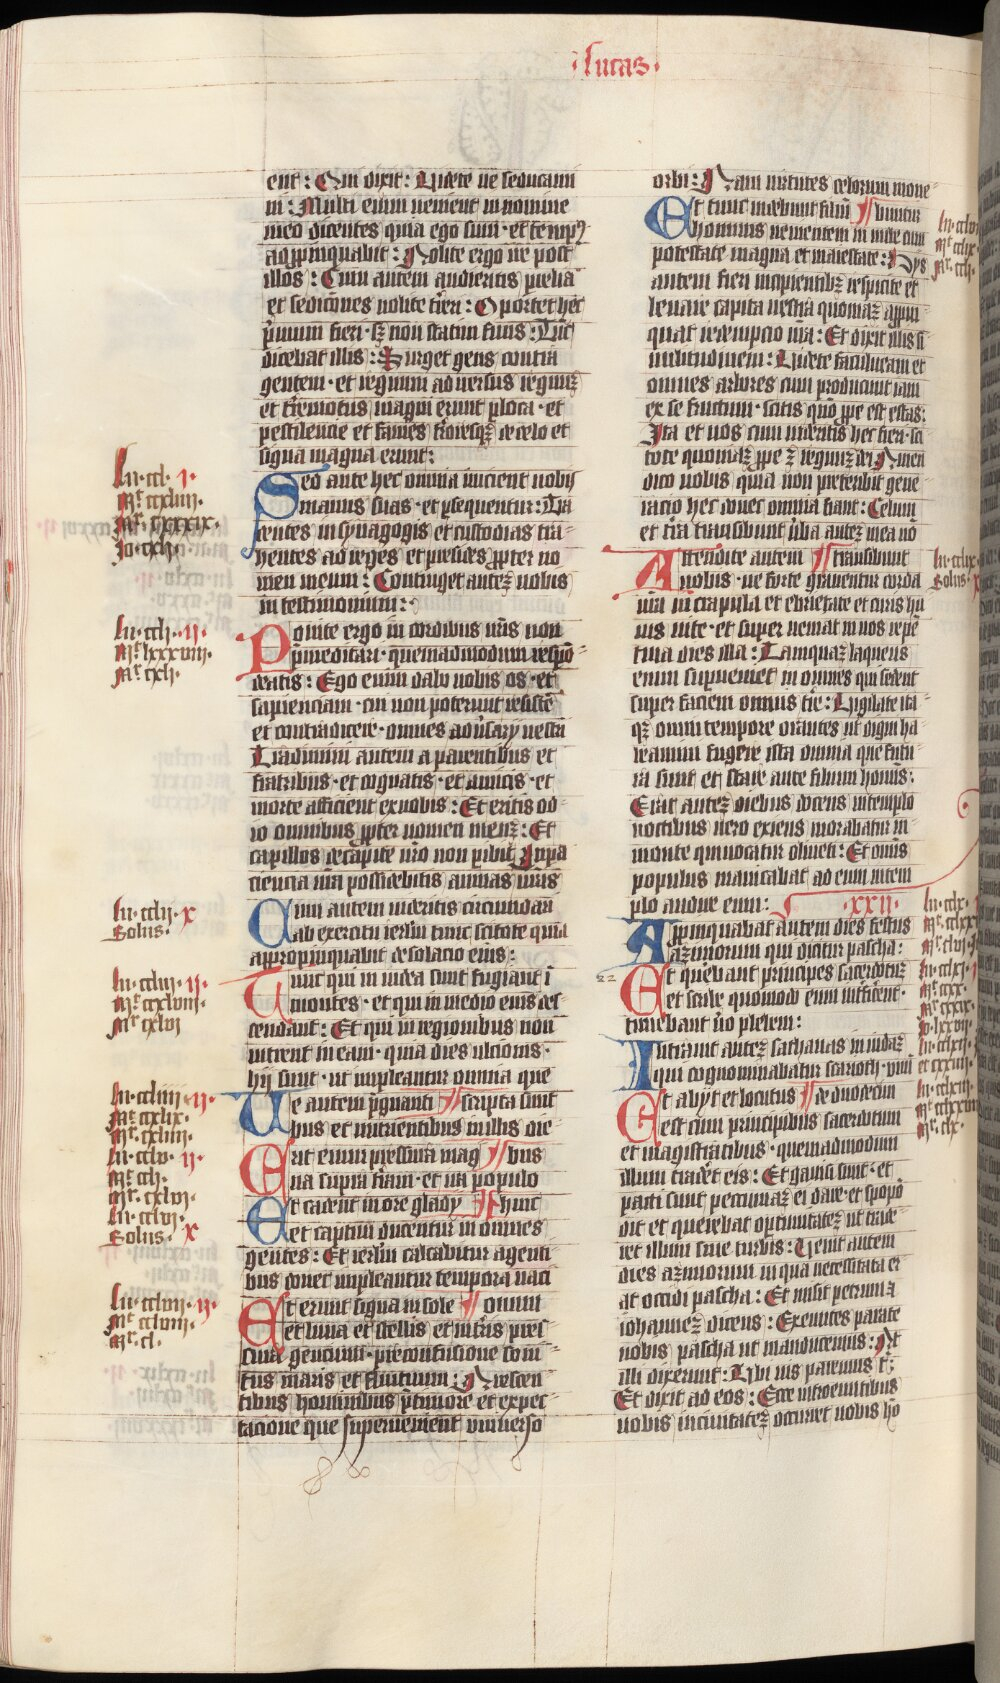 ·lucas·
ent: Qui dixit: Videte ne seducami
ni: Multi enim uenient in nomine
meo dicentes quia ego sum · et tempꝰ
appropinquabit: Nolite ergo ire post
illos: Cum autem audieritis prelia
et sediciones nolite tr̄eri: Oportet hec
p̄mum fieri · sꝫ non statim finis: Tūc
dicebat illis: Surget gens contra
gentem · et regnum aduersus regnūꝫ
et t̄remotus magni erunt p loca · et
pestilencie et fames t̄roresqꝫ de celo et
signa magna erunt:
Sed ante hec omnia inicient nobis
manus suas · et p̄sequentur: Tra
dentes in synagogis et custodias tra
hentes ad reges et presides ꝓpter no
men meum: Continget autēꝫ uobis
in testimonium:
Ponite ergo in cordibus ur̄is non
p̄meditari · quemadmodum respō
deatis: Ego enim dabo uobis os · et
sapienciam · cui non poterunt resistē
et contradicere · omnes aduersarij uestri
Trademini autem a parentibus et
fratribus · et cognatis · et amicis · et
morte afficient ex uobis: Et eritis od
io omnibus ꝓpter nomen meūꝫ: Et
capillos de capite ur̄o non pibit: In pa
ciencia ur̄a possidebitis animas ur̄as
Cum autem uideritis circumdari
ab exercitu ierl̄m tunc scitote quia
appropinquabit desolacio eius:
Tunc qui in iudea sunt fugiant ī
montes · et qui in medio eius des
cendant: Et qui in regionibus non
intrent in eam · quia dies ulcionis ·
hij sunt · ut impleantur omnia que
Ue autem p̄gnanti scripta sunt
bus et nutrientibus in illis die
Erit enim pressura mag bus
na supra t̄ram · et ira populo
Et cadent in ore gladij huic
et captiui ducentur in omnes
gentes: Et ierl̄m calcabitur a genti
bus donec impleantur tempora naci
Et erunt signa in sole onum
et luna et stellis et in t̄ris pres
sura gentium · pre confusione soni
tus maris et fluctuum: Arescen
tibus hominibus p̄ timore et expec
tacione que superuenient uniuerso
orbi: Nam uirtutes celorum moue
Et tunc uidebunt filiū buntur
hominis uenientem in nube cum
potestate magna et maiestate: Hijs
autem fieri incipientibꝫ respicite et
leuate capita uestra quoniaꝫ appin
quat redempcio ur̄a: Et dixit illis si
militudinem: Videte ficulneam et
omnes arbores cum producunt iam
ex se fructum · scitis quō ꝓpe est estas:
Ita et uos cum uideritis hec fieri · sci
tote quoniaꝫ ꝓpe ē regnūꝫ dei Amen
dico uobis quia non pretenbit gene
racio hec donec omnia fiant: Celum
et t̄ra transibunt u̇ba auteꝫ mea nō
Attendite autem transibunt
uobis · ne forte grauentur corda
ur̄a in crapula et ebrietate et curis hu
ius uite · et super ueniat in uos repē
tina dies illa: Tamquaꝫ laqueus
enim superueniet in omnes qui sedent
super faciem omnis t̄re: Vigilate ita
qꝫ omni tempore orantes ut digni ha
beamini fugere ista omnia que futu
ra sunt et stare ante filium hominis:
Erat auteꝫ diebus docens in templo
noctibus uero exiens morabatur in
monte qui uocatur oliueti: Et omnis
populus manicabat ad eum in tem
plo audire eum: ·xxij·
Appinquabat autem dies festus
azimorum qui dicitur pascha:
Et querebant principes sacerdotūꝫ
et scribe quomodo eum int̄ficerēt ·
timebant uo plebem:
Intrauit auteꝫ sathanas in iudaꝫ
qui cognominabatur scarioth · unū
Et abijt et locutus de duodecim
est cum principibus sacerdotum
et magistratibus · quemadmodum
illum traderet eis: Et gauisi sunt · et
pacti sunt pecuniaꝫ ei dare · et spopō
dit et querebat optunitateꝫ ut trade
ret illum sine turbis: Venit autem
dies azimorum in qua necessitata er
at occidi pascha: Et misit petrum ꝛ
iohanneꝫ dicens: Exeuntes parate
nobis pascha ut manducemus: At
illi dixerunt: Vbi uis paremus t:
Et dixit ad eos: Ecce introeuntibus
uobis in ciuitateꝫ occurret uobis ho
lu·ccl· I·
mr·lxxxix·
Io·cxlij
lu·cclj·ij·
mt·lxxxviij·
mr·cxlj·
lu·cclij·x
Solus·
lu·ccliij·ij·
mt·ccxlviij·
mr·cxlvj
lu·ccliiij·ij·
mt·ccxlix·
mr·cxlviij·
lu·cclv·ij·
mt·cclj·
mr·cxlvj·
lu·cclvj·
Solus·x
lu·cclvij·ij·
mt·cclviij·
mr·cl·
Solus·
22